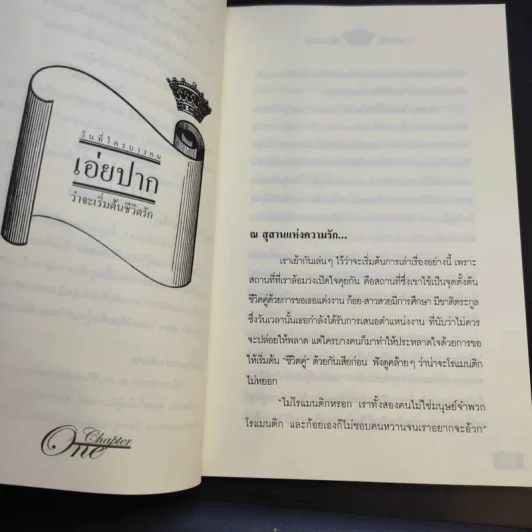 วันที่ใครบางคน
เอ่ยปาก
ว่าจะเริ่มต้นชีวิตรัก
Chapter
One
ณ สุสานแห่งความรัก...
เราเย้ากันเล่นๆ ไว้ว่าจะเริ่มต้นการเล่าเรื่องอย่างนี้ เพราะ
สถานที่ที่เราล้อมวงเปิดใจคุยกัน คือสถานที่ซึ่งเขาใช้เป็นจุดตั้งต้น
ชีวิตคู่ด้วยการขอเธอแต่งงาน ก้อย-สาวสวยมีการศึกษา มีชาติตระกูล
ซึ่งวันเวลานั้นเธอกำลังได้รับการเสนอตำแหน่งงาน ที่นับว่าไม่ควร
จะปล่อยให้พลาด แต่ใครบางคนก็มาทำให้ประหลาดใจด้วยการขอ
ให้เริ่มต้น "ชีวิตคู่" ด้วยกันเสียก่อน ฟังดูคล้ายๆ ว่าน่าจะโรแมนติก
ไม่หยอก
"ไม่โรแมนติกหรอก เราทั้งสองคนไม่ใช่มนุษย์จำพวก
โรแมนติก และก้อยเองก็ไม่ชอบคนหวานจนเราอยากจะอ้วก"